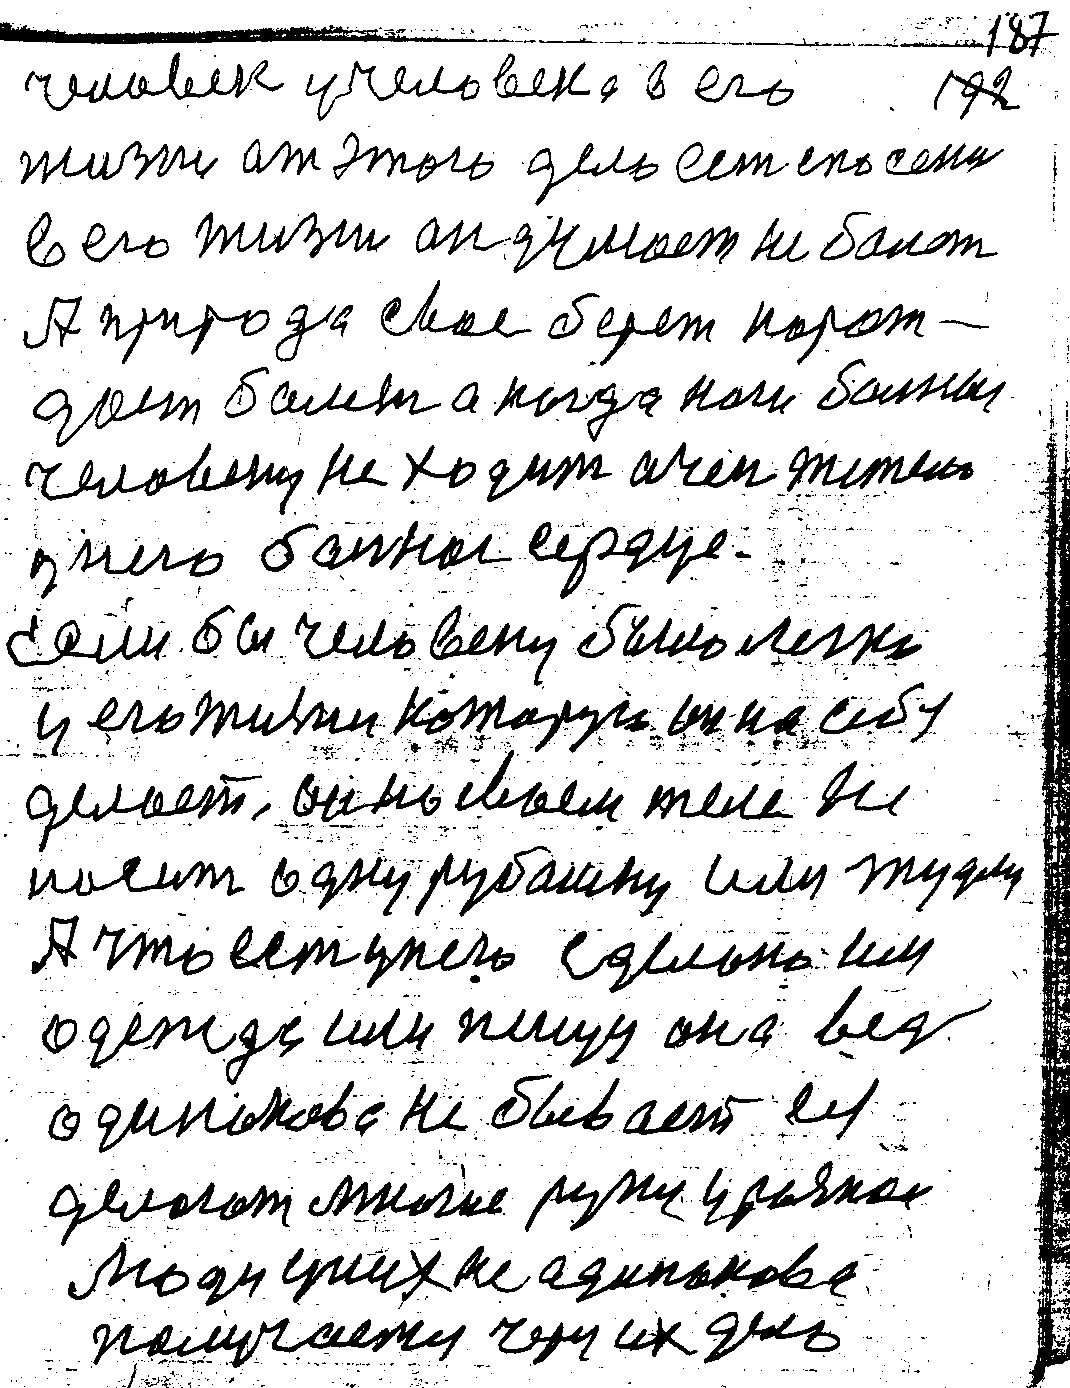 187
человек учеловека в его 192
жизни от этого дело ест спосени
в его жизни он думает не болет
А природа свое берет порож—
дает болезн а когда ноги болныи
человеку не ходит
у него болное сердце.
Если бы человеку было легко
у его жизни которую он на себу
делает, он но своем теле не
носит одну рубашку или
А что ест унего сделоно им
одежда или пищу она вед
одинокова не бывает еу
делоют многие руки у
люди уних не одинокова
получаетц чери их дело